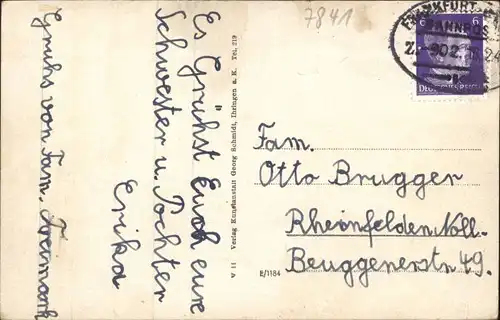 7841
FRANKFURT
BAHNPOST
6 6
DEUTSCHES REICH
Es Grühst Euch eure
Schwester u. Tochter
Erika
Gruhs von Fam.
V 11 Verlag Kunstanstalt Georg Schmidt, Ihringen a. K. Tel. 219
E/1184
Fam.
Otto Brugger
Rheinfelden Noll-
Beuggenerstr 49.